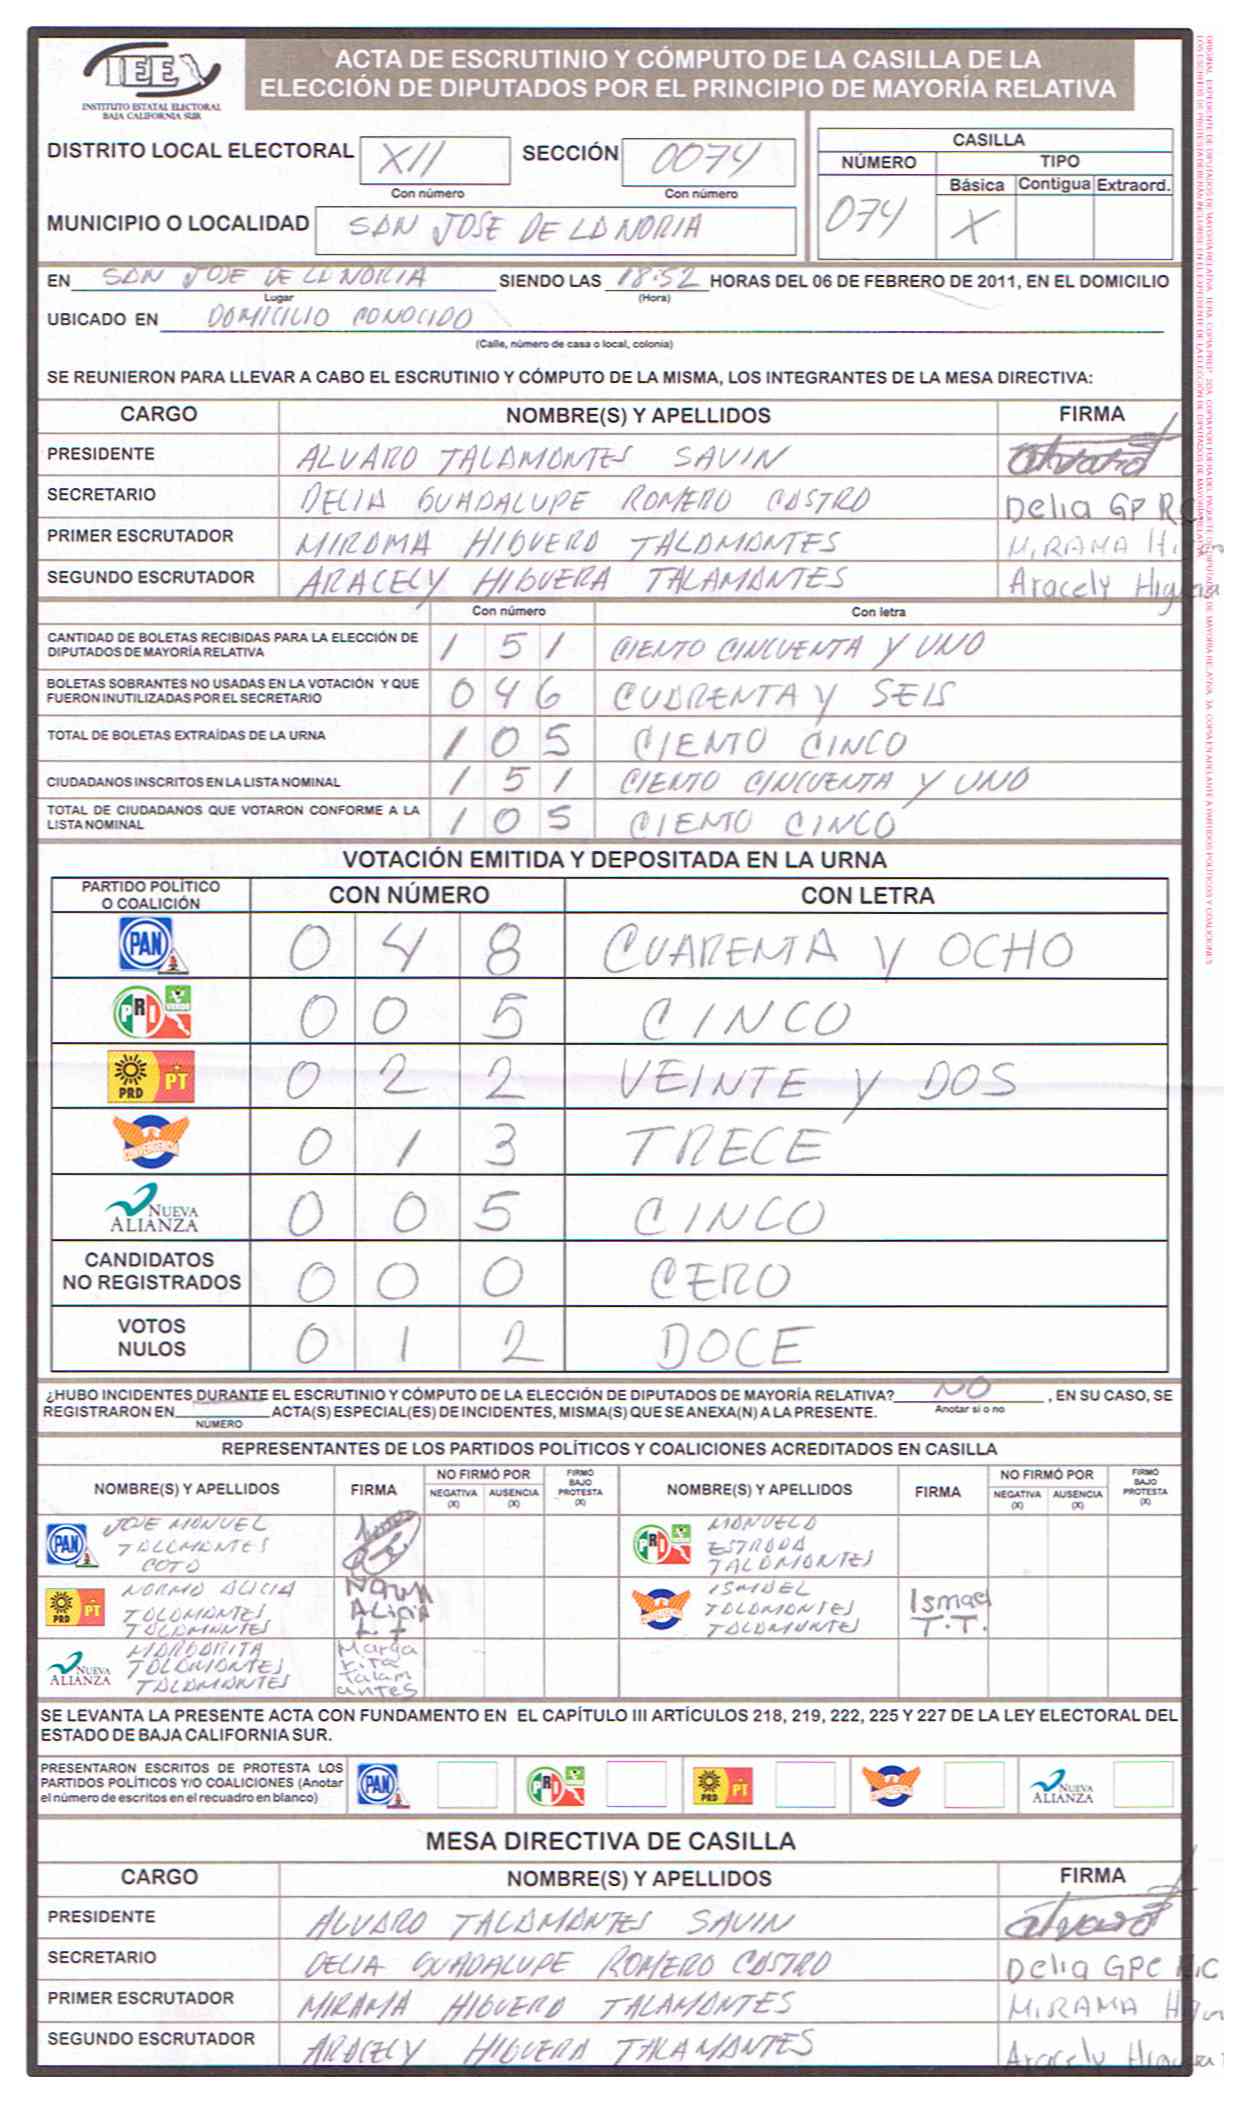 IEE
INSTITUTO ESTATAL ELECTORAL
BAJA CALIFORNIA SUR
ACTA DE ESCRUTINIO Y CÓMPUTO DE LA CASILLA DE LA
ELECCIÓN DE DIPUTADOS POR EL PRINCIPIO DE MAYORÍA RELATIVA
DISTRITO LOCAL ELECTORAL XII SECCIÓN 0074
Con número Con número
MUNICIPIO O LOCALIDAD SAN JOSE DE LA NORIA
CASILLA
NÚMERO TIPO
Básica Contigua Extraord.
074 X
EN SAN JOSE DE LA NORIA SIENDO LAS 18:52 HORAS DEL 06 DE FEBRERO DE 2011, EN EL DOMICILIO
Lugar (Hora)
UBICADO EN DOMICILIO CONOCIDO
(Calle, número de casa o local, colonia)
SE REUNIERON PARA LLEVAR A CABO EL ESCRUTINIO Y CÓMPUTO DE LA MISMA, LOS INTEGRANTES DE LA MESA DIRECTIVA:
CARGO NOMBRE(S) Y APELLIDOS FIRMA
PRESIDENTE ALVARO TALAMANTES SAVIN alvaro
SECRETARIO DELIA GUADALUPE ROMERO CASTRO Delia GP RC
PRIMER ESCRUTADOR MIRAMA HIGUERA TALAMANTES MIRAMA
SEGUNDO ESCRUTADOR ARACELY HIGUERA TALAMANTES Aracely Higuera
Con número Con letra
CANTIDAD DE BOLETAS RECIBIDAS PARA LA ELECCIÓN DE
DIPUTADOS DE MAYORÍA RELATIVA 1 5 1 CIENTO CINCUENTA Y UNO
BOLETAS SOBRANTES NO USADAS EN LA VOTACIÓN Y QUE
FUERON INUTILIZADAS POR EL SECRETARIO 0 4 6 CUARENTA Y SEIS
TOTAL DE BOLETAS EXTRAÍDAS DE LA URNA 1 0 5 CIENTO CINCO
CIUDADANOS INSCRITOS EN LA LISTA NOMINAL 1 5 1 CIENTO CINCUENTA Y UNO
TOTAL DE CIUDADANOS QUE VOTARON CONFORME A LA
LISTA NOMINAL 1 0 5 CIENTO CINCO
VOTACIÓN EMITIDA Y DEPOSITADA EN LA URNA
PARTIDO POLÍTICO
O COALICIÓN CON NÚMERO CON LETRA
PAN 0 4 8 CUARENTA Y OCHO
PRI VERDE 0 0 5 CINCO
PRD PT 0 2 2 VEINTE Y DOS
CONVERGENCIA 0 1 3 TRECE
NUEVA
ALIANZA 0 0 5 CINCO
CANDIDATOS
NO REGISTRADOS 0 0 0 CERO
VOTOS
NULOS 0 1 2 DOCE
¿HUBO INCIDENTES DURANTE EL ESCRUTINIO Y CÓMPUTO DE LA ELECCIÓN DE DIPUTADOS DE MAYORÍA RELATIVA? NO , EN SU CASO, SE
REGISTRARON EN ACTA(S) ESPECIAL(ES) DE INCIDENTES, MISMA(S) QUE SE ANEXA(N) A LA PRESENTE. Anotar si o no
NUMERO
REPRESENTANTES DE LOS PARTIDOS POLÍTICOS Y COALICIONES ACREDITADOS EN CASILLA
NOMBRE(S) Y APELLIDOS FIRMA NO FIRMÓ POR NEGATIVA (X) AUSENCIA (X) FIRMÓ BAJO PROTESTA (X)
NOMBRE(S) Y APELLIDOS FIRMA NO FIRMÓ POR NEGATIVA (X) AUSENCIA (X) FIRMÓ BAJO PROTESTA (X)
PAN JOSE MANUEL
TALAMANTES
COTA
PRI MANUELA
ESTRADA
TALAMANTES
PRD PT NORMA ALICIA
TALAMANTES
TALAMANTES
Norma
ALicia
T.T
ISMAEL
TALAMANTES
TALAMANTES
Ismael
T.T.
NUEVA
ALIANZA
MARGARITA
TALAMANTES
TALAMANTES
Marga
rita
Talam
antes
SE LEVANTA LA PRESENTE ACTA CON FUNDAMENTO EN EL CAPÍTULO III ARTÍCULOS 218, 219, 222, 225 Y 227 DE LA LEY ELECTORAL DEL
ESTADO DE BAJA CALIFORNIA SUR.
PRESENTARON ESCRITOS DE PROTESTA LOS
PARTIDOS POLÍTICOS Y/O COALICIONES (Anotar
el número de escritos en el recuadro en blanco)
PAN PRI PRD PT NUEVA
ALIANZA
MESA DIRECTIVA DE CASILLA
CARGO NOMBRE(S) Y APELLIDOS FIRMA
PRESIDENTE ALVARO TALAMANTES SAVIN alvaro
SECRETARIO DELIA GUADALUPE ROMERO CASTRO Delia GPE
PRIMER ESCRUTADOR MIRAMA HIGUERA TALAMANTES MIRAMA
SEGUNDO ESCRUTADOR ARACELY HIGUERA TALAMANTES Aracely Higuera